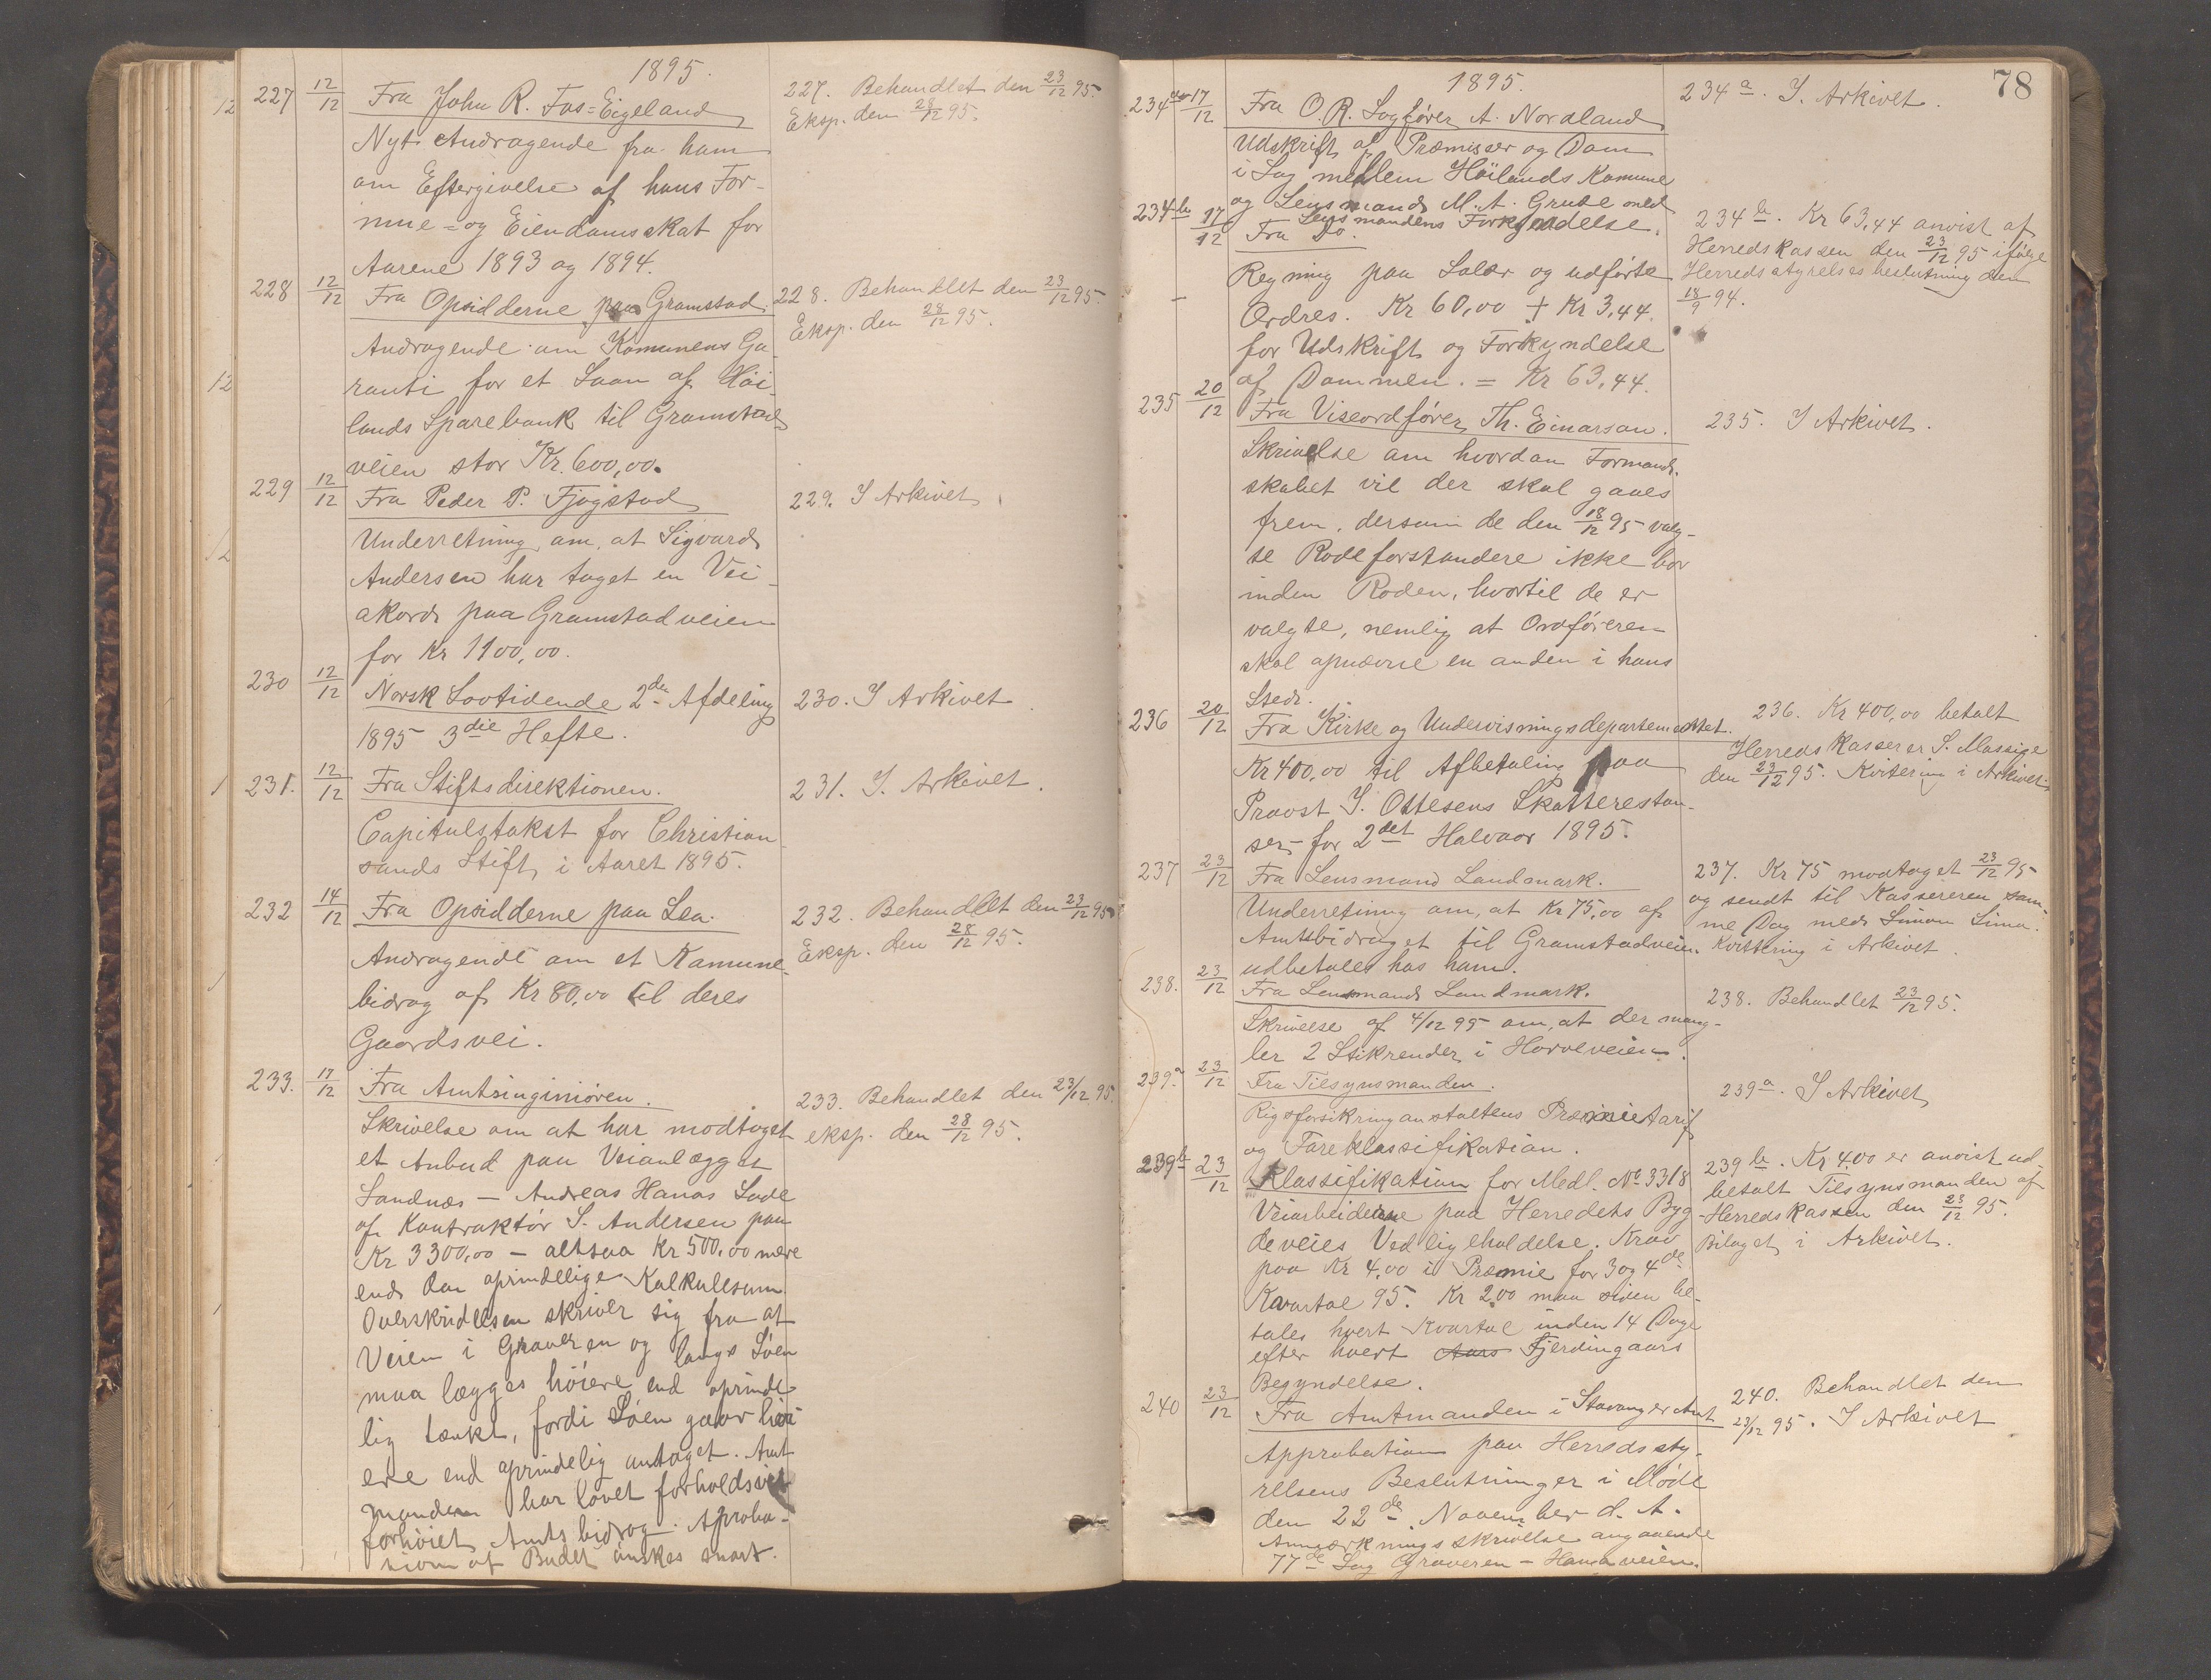 1895.
227 12/12 Fra John R. Fos-Eigeland
Nyt Andragende fra ham
om Eftergivelse af hans For-
mue- og Eiendomsskat for
Aarene 1893 og 1894.
227. Behandlet den 23/12 95.
Eksp. den 28/12 95.
228 12/12 Fra Opsidderne paa Gramstad.
Andragende om Komunens Ga-
ranti for et Laan af Höi-
lands Sparebank til Gramstad
veien stor Kr. 600,00.
228. Behandlet den 23/12 95.
Eksp. den 28/12 95.
229 12/12 Fra Peder P. Fjogstad
Underretning om, at Sigvard
Andersen har taget en Vei-
akord paa Gramstadveien
for Kr 1100,00.
229. I Arkivet
230 12/12 Norsk Lovtidende 2den Afdeling
1895 3die Hefte.
230. I Arkivet
231. 12/12 Fra Stiftsdirektionen.
Capitulstakst for Christian-
sands Stift, i Aaret 1895.
231. I. Arkivet.
232 14/12 Fra Opsidderne paa Lea.
Andragende om et Komune-
bidrag af Kr 80,00 til deres
Gaardsvei.
232. Behandlet den 23/12 95
Eksp. den 28/12 95.
233. 17/12 Fra Amtsinginiøren.
Skrivelse om at har modtaget
et Anbud paa Veianlægget
Sandnæs – Andreas Hanas Lade
af Kontraktør S. Andersen paa
Kr 3300,00 – altsaa Kr 500,00 mere
end den oprindelige Kalkulesum.
Overskridelsen skriver sig fra at
Veien i Graveren og langs Søen
maa lægges høiere end oprinde-
lig tænkt, fordi Søen gaar höi-
ere end oprindelig antaget. Amt
manden har lovet forholdsvis
forhøiet Amtsbidrag. Aproba-
sion af Budet ønskes snart.
233. Behandlet den 23/12 95.
eksp. den 28/12 95.
78
1895.
234 a 17/12 Fra O.R. Sagfører A. Nordland
Udskrift af Præmisser og Dom
i Sag mellem Höilands Komune
og Lensmand M. A. Grude med
Lensmandens Forkyndelse.
234a. I. Arkivet.
234b 17/12 Fra Do.
Regning paa Salær og udførte
Ordres. Kr 60,00 + Kr 3,44.
for Udskrift og Forkyndelse
af Dommen. = Kr 63,44.
234b. Kr 63,44 anvist af
Herredskassen den 23/12 95 ifølge
Herredsstyrelses beslutning den
18/9 94.
235 20/12 Fra Viseordfører Th. Einarsan.
Skrivelse om hvordan Formand-
skabet vil der skal gaaes
frem, dersom de den 18/12 95 valg-
te Rodeforstandere ikke bor
inden Roden, hvortil de er
valgte, nemlig at Ordføreren
skal opnævne en anden i hans
Sted.
235. I Arkivet.
236 20/12 Fra Kirke og Undervisningsdepartementet.
Kr 400,00 til Afbetaling paa
Provst I. Ottesens Skatterestan-
ser for 2det Halvaar 1895.
236. Kr 400,00 betalt
Herredskasserer S. Massige
den 23/12 95. Kvitering i Arkivet.
237 23/12 Fra Lensmand Landmark.
Underretning om, at Kr 75,00 af
Amtsbidraget til Gramstadveien
udbetales hos ham.
237. Kr 75 modtaget 23/12 95
og sendt til Kassereren sam-
me Dag med Simon Lima.
Kvittering i Arkivet.
238. 23/12 Fra Lensmand Landmark.
Skrivelse af 4/12 95 om, at der mang-
ler 2 Stikrender i Hoveveien.
238. Behandlet 23/12 95.
239a 23/12 Fra Tilsynsmanden.
Rigsforsikringanstaltens Præmietarif
og Fareklassifikation.
239a. I Arkivet
239b 23/12 Klassifikation for Medl. No 3318
Veiarbeiderne paa Herredets Byg-
deveies Vedligeholdelse. Krav
paa Kr 4,00 i Præmie for 3 og 4de
Kvartal 95. Kr 2,00 maa siden be-
tales hvert Kvartal inden 14 Dage
efter hvert Aars Fjerdingaars
Begyndelse.
239b. Kr 4,00 er anvist ud-
betalt Tilsynsmanden af
Herredskassen den 23/12 95.
Bilaget i Arkivet.
240 23/12 Fra Amtmanden i Stavanger Amt
Approbation paa Herredssty-
relsens Beslutninger i Møde
den 22de November d. A.
Anmærkningsskrivelse angaaende
77de Sag Graveren – Hanaveien.
240. Behandlet den
23/12 95. I Arkivet